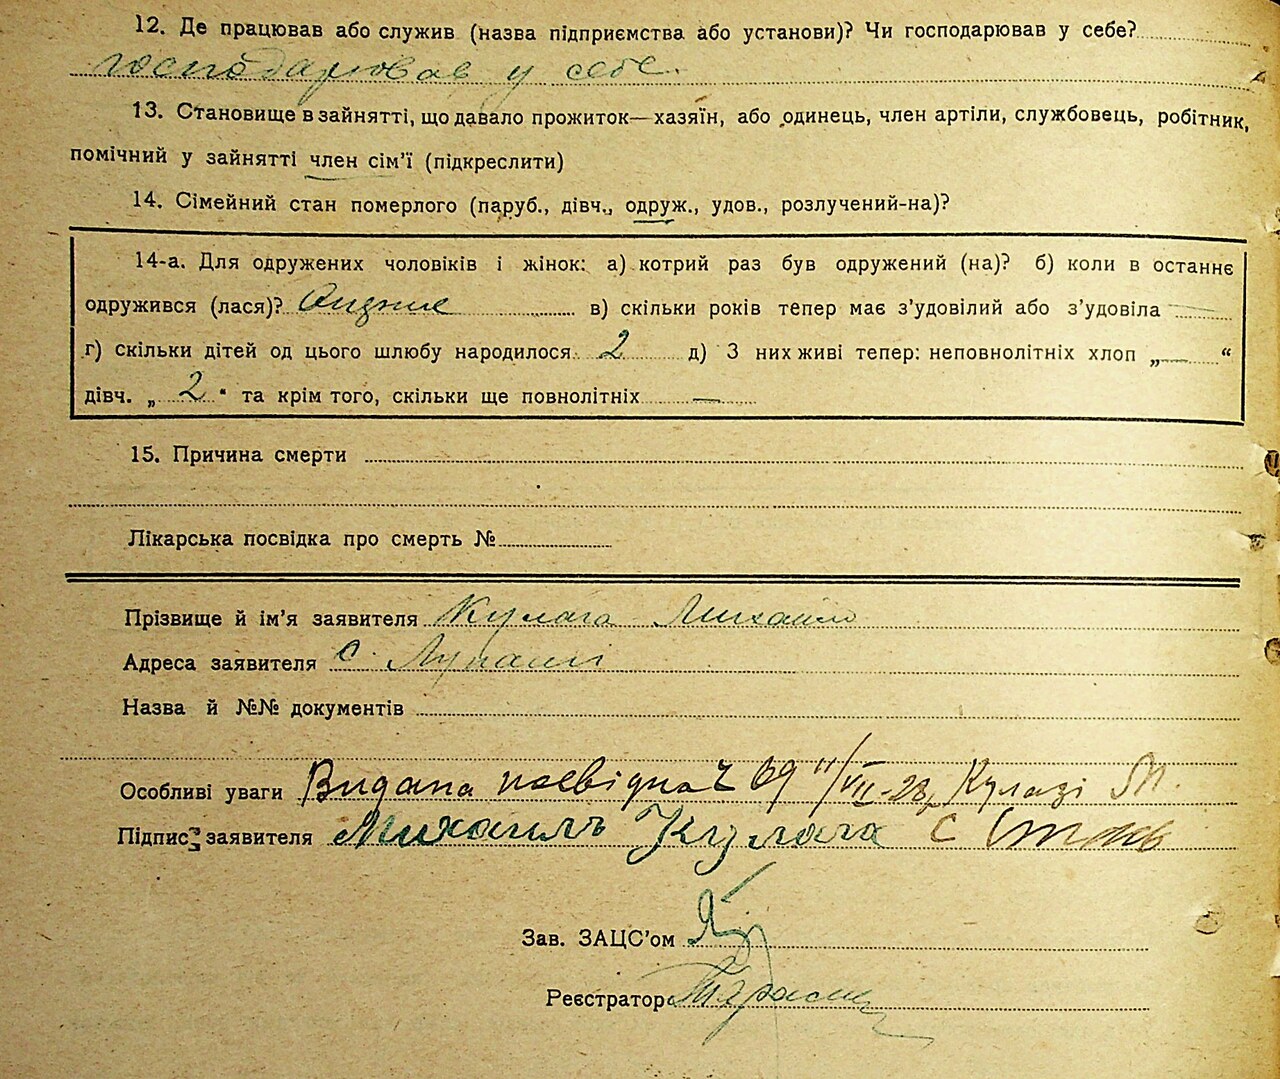 12. Де працював або служив (назва підприємства або установи)? Чи господарював у себе?
господарював у себе.
13. Становище в зайнятті, що давало прожиток—хазяїн, або одинець, член артіли, службовець, робітник,
помічний у зайнятті член сім'ї (підкреслити)
14. Сімейний стан померлого (паруб., дівч., одруж., удов., розлучений-на)?
14-а. Для одружених чоловіків і жінок: а) котрий раз був одружений (на)? б) коли в останнє
одружився (лася)? в) скільки років тепер має з'удовілий або з'удовіла —
г) скільки дітей од цього шлюбу народилося 2 д) З них живі тепер: неповнолітніх хлоп „—“
дівч. „2" та крім того, скільки ще повнолітніх —
15. Причина смерти
Лікарська посвідка про смерть №
Прізвище й ім'я заявителя Кулага Михайло
Адреса заявителя с.
Назва й №№ документів
Особливі уваги Видана посвідка 69 11/VII-28р Кулазі М.
Підпис заявителя Михаилъ Кулага с
Зав. ЗАЦС'ом
Реєстратор